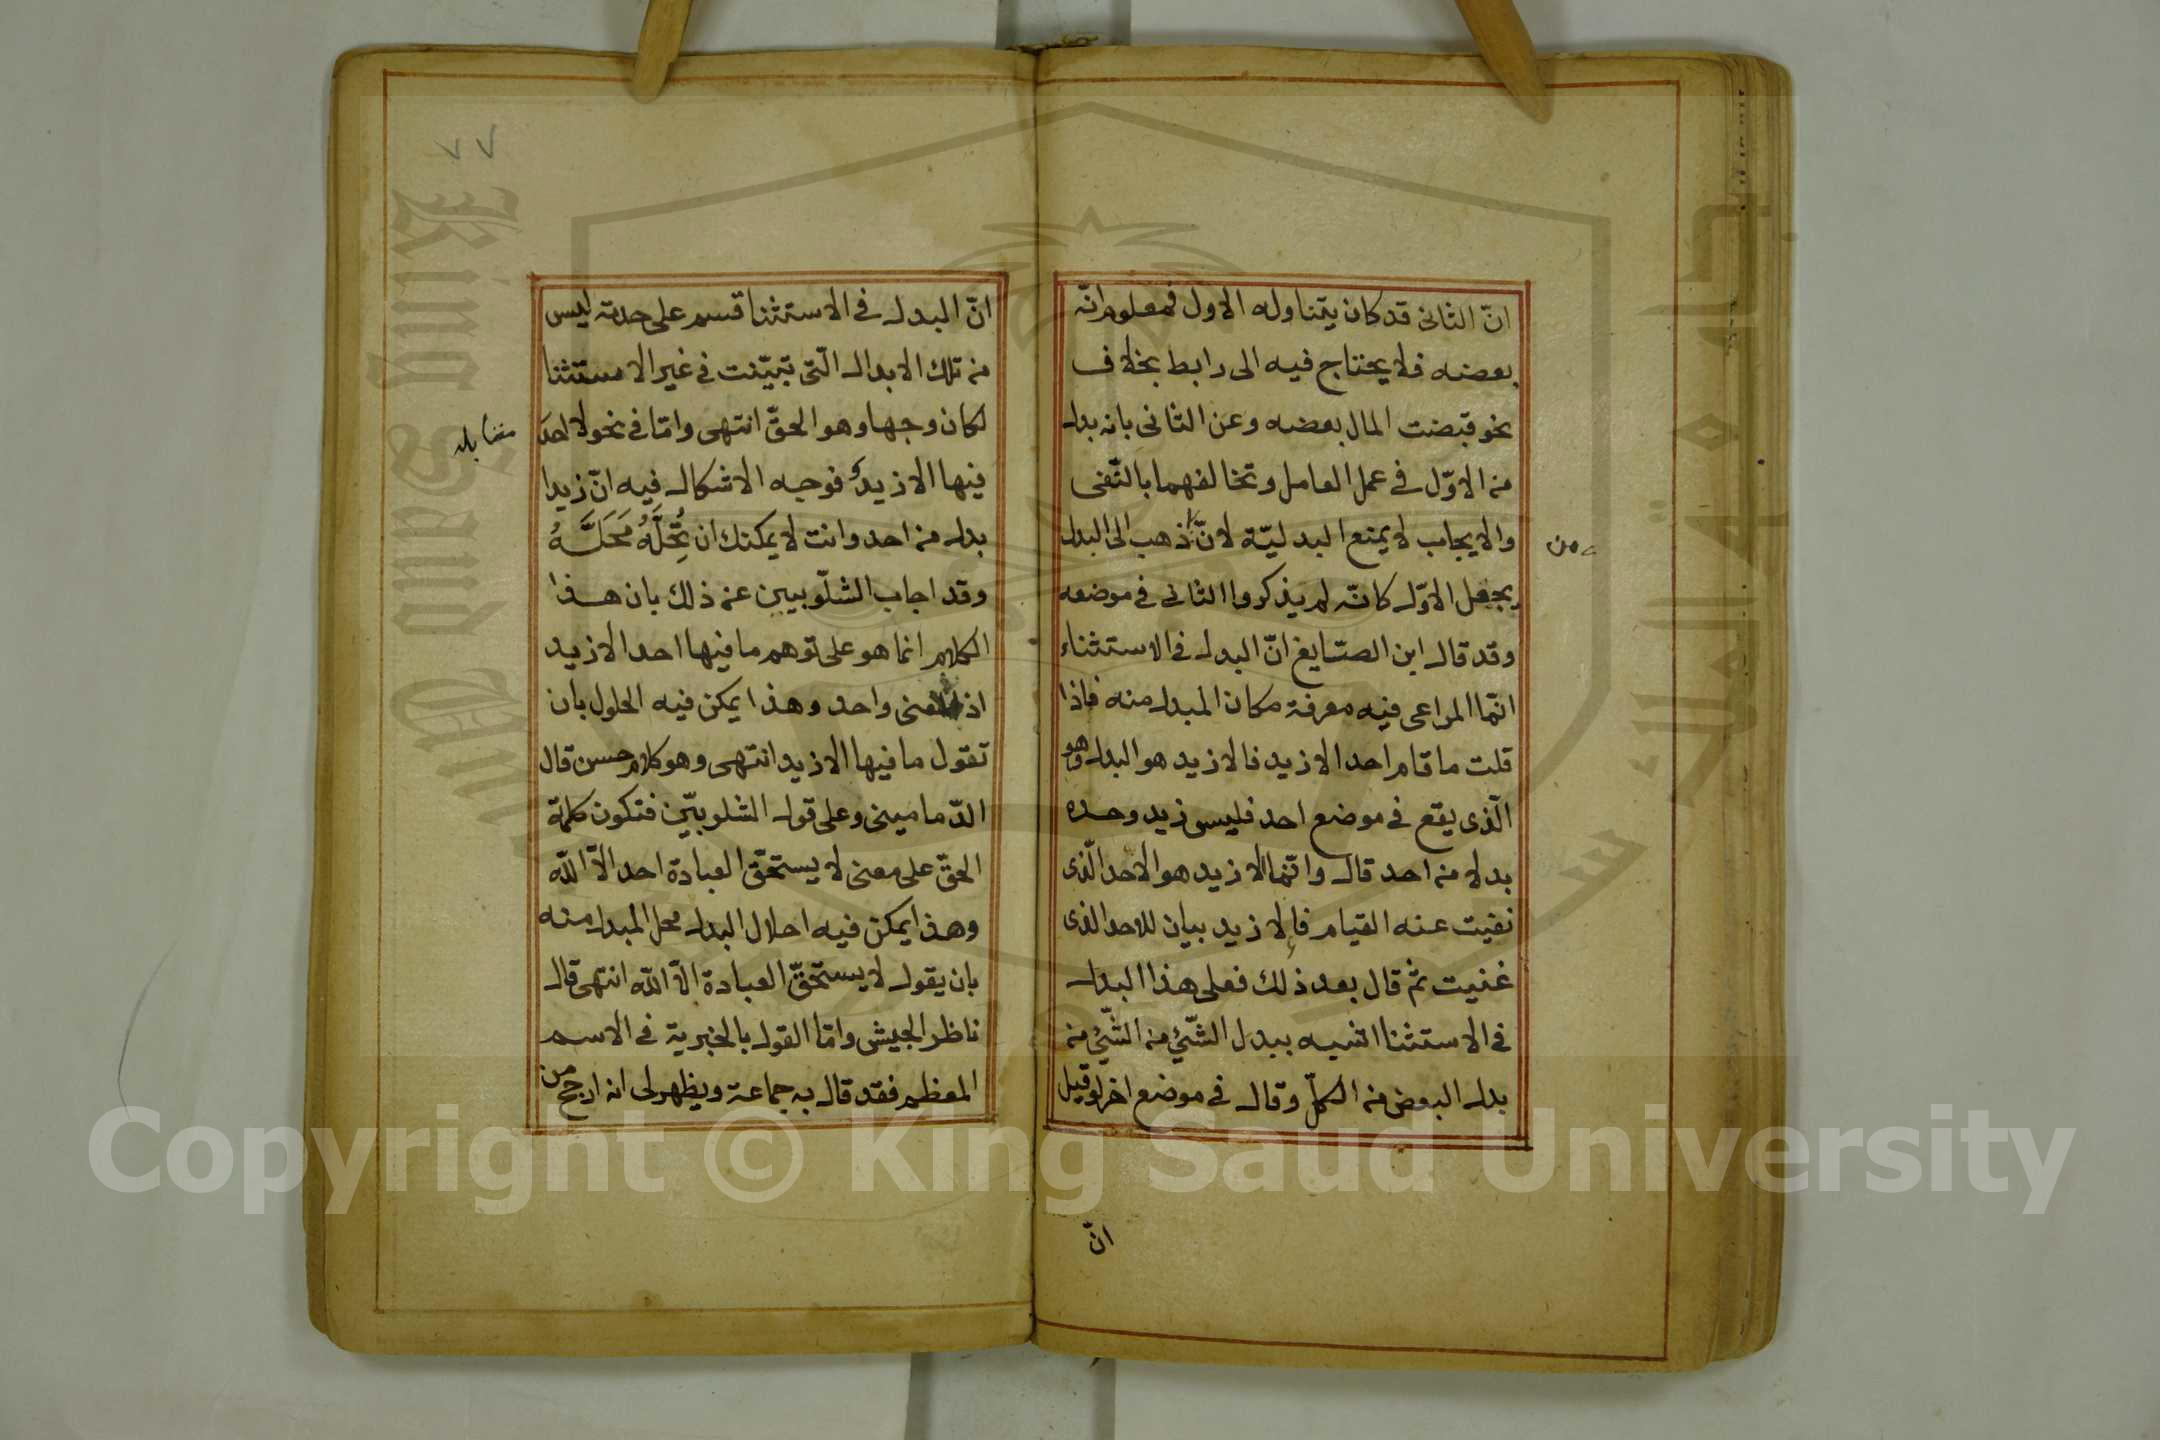 انّ الثانى قد كان يتناوله الاول فمعلوم انّه
بعضه فلا يحتاج فيه الى رابط بخلاف
نحو قبضت المال بعضه وعن الثانى بانه بدل
من الاوّل فى عمل العامل وتخالفهما بالنّفى
والايجاب لا يمنع البدليّة لانّ ذهب الى البدل
من
بجعل الاوّل كانّه لم يذكر والثانى فى موضعه
وقد قال ابن الصّايغ انّ البدل فى الاستثناء
انّما المراعى فيه معرفة مكان المبدل منه فاذا
قلت ما قام احد الا زيد فالا زيد هو البدل وهو
الّذى يقع فى موضع احد فليس زيد وحده
بدلا من احد قال وانّما الا زيد هو الاحد الّذى
نفيت عنه القيام فالا زيد بيان للاحد الذى
عنيت ثمّ قال بعد ذلك فعلى هذا البدل
فى الاستثنا اشبه ببدل الشّئ من الشّئ من
بدل البعض من الكلّ وقال فى موضع اخر لو قيل
انّ
٧٧
انّ البدل فى الاستثنا قسم على حدته ليس
من تلك الابدال الّتى تبيّنت فى غير الاستثنا
لكان وجها وهو الحقّ انتهى وامّا فى نحو لا احد
فيها الا زيد فوجه الاشكال فيه انّ زيدا
بدل من احد وانت لا يمكنك ان تُحِلَّهُ مَحَلَّهُ
وقد اجاب الشلّوبيين عن ذلك بان هذا
الكلام انما هو على توهم ما فيها احد الا زيد
اذ المعنى واحد وهذا يمكن فيه الحلول بان
تقول ما فيها الا زيد انتهى وهو كلام حسن قال
الدّمامينى وعلى قول الشلوبيّين فتكون كلمة
الحقّ على معنى لا يستحقّ العبادة احد الّا اللّه
وهذا يمكن فيه احلال البدل محل المبدل منه
بان يقول لا يستحقّ العبادة الّا اللّه انتهى قال
ناظر الجيش وامّا القول بالخبرية فى الاسم
المعظم فقد قال به جماعة ويظهر لى انه ارجح من
Copyright © King Saud University